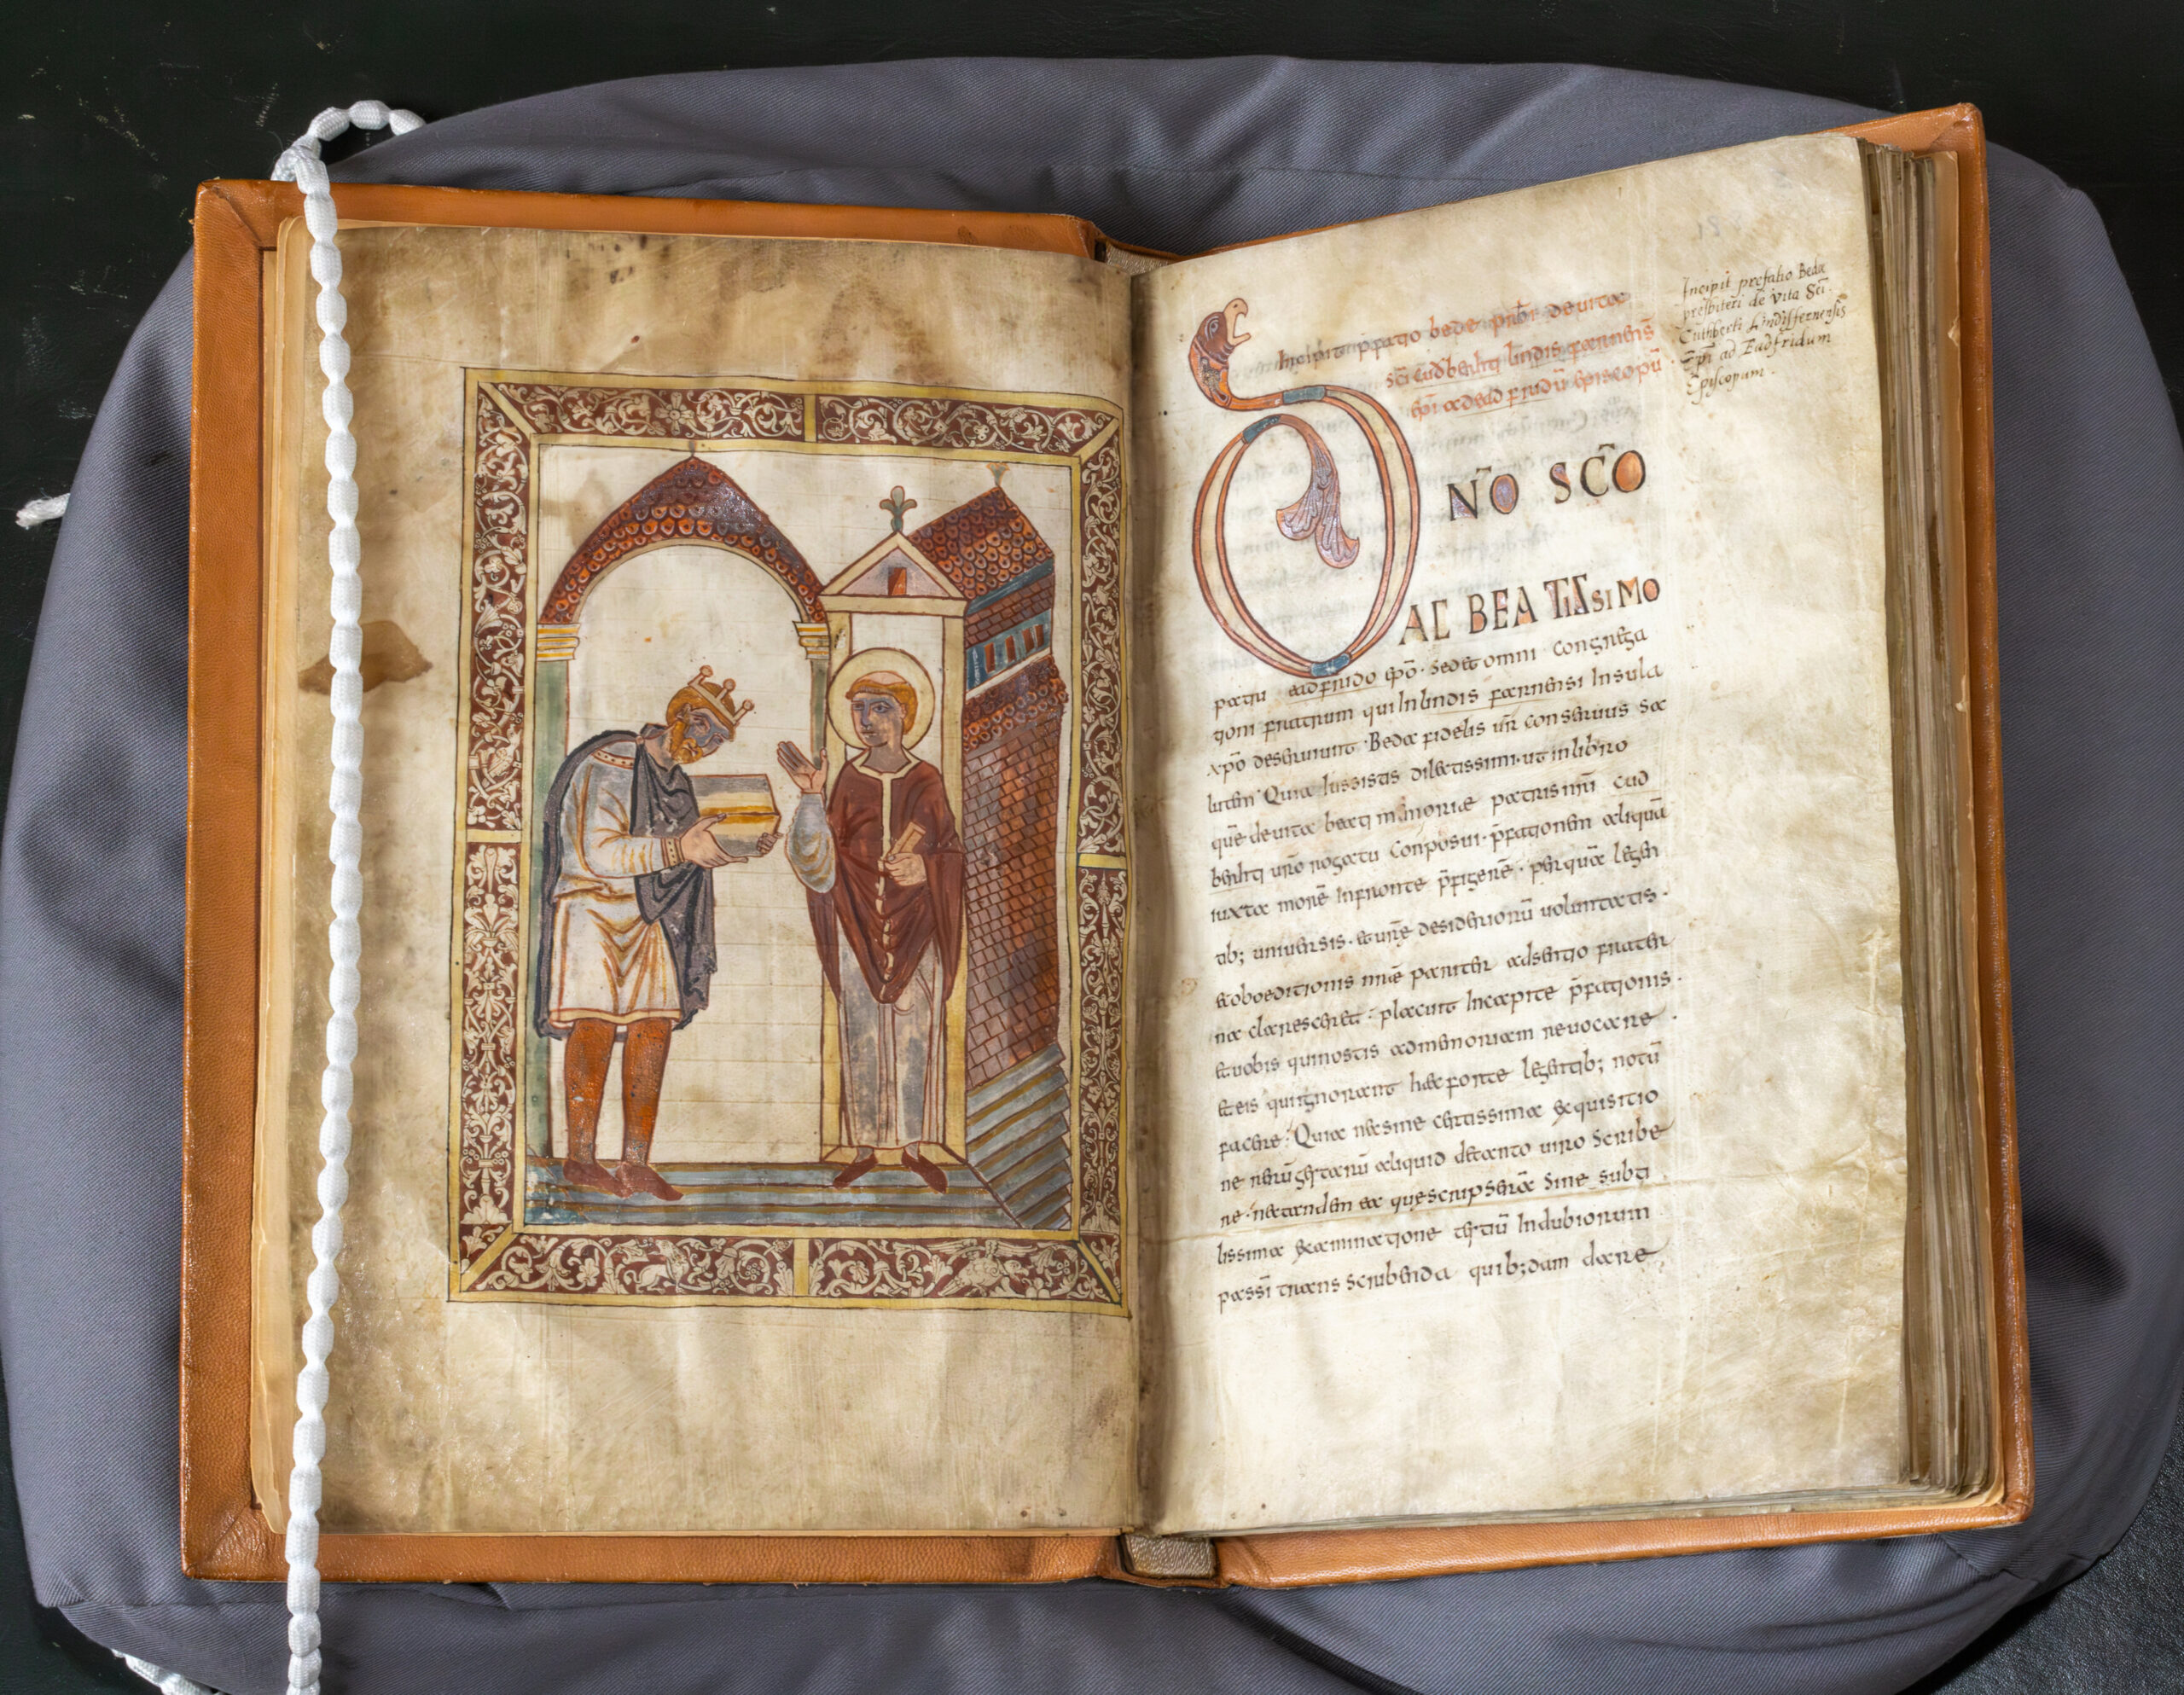 Incipit p̄fatio bede p̄sbr̄ de uita
sc̄i cuðberhti lindisfarnensis
ep̄i ad eadfridū episcopū
Incipit prefatio Bedæ
presbiteri de Vita Sc̄i
Cuthberti Lindisfernensis
Ep̄i ad Eadfridum
Episcopum.
DN̄O SC̄O
AC BEATISSIMO
patri eadfrido ep̄o. sed et omni congrega
tioni fratrum qui in lindis farnensi insula
xp̄o deseruiunt. Beda fidelis ur̄ conseruus sa
lutem. Quia iussistis dilectissimi. ut in libro
quē de uita beati memoriae patris nr̄i cud
berhti ur̄o rogatu conposui. p̄fationem aliquā
iuxta morē in fronte p̄figerē. per quā legen
tib; uniuersis. et ur̄e desideriorū uoluntatis.
et oboeditionis meē pariter adsertio frater
na claresceret. placuit in capite p̄fationis.
et uobis qui nostis ad memoriam reuocare.
et eis qui ignorant haec forte legentib; notū
facere. Quia nec sine certissima exquisitio
ne rerū gestarū aliquid de tanto uiro scribe
re. nec tandem ea quę scripserā sine subti
lissima examinatione testiū indubiorum
passī transscribenda quib;dam dare